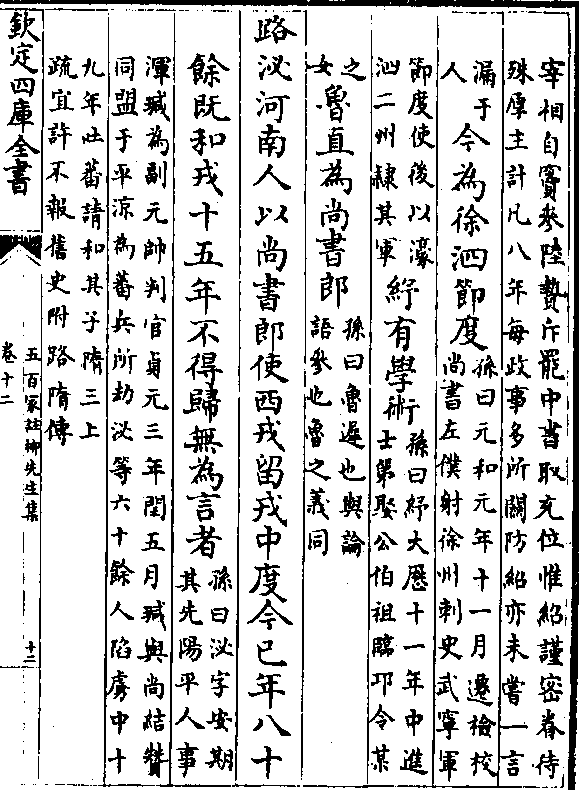 宰相自竇參陸贄斥罷中書取充位惟紹謹密眷待
殊厚主計凡八年每政事多所關防紹亦未嘗一言
漏于
人
今為徐泗節度
孫曰元和元年十一月遷檢校
尚書左僕射徐州刺史武寧軍
節度使後以濠
泗二州隸其軍
紓有學術
孫曰紓大歷十一年中進
士第娶公伯祖臨邛令某
之
女
魯直為尚書郎
孫曰魯遲也與論
語參也魯之義同
路泌河南人以尚書郎使西戎留戎中度今已年八十
餘既和戎十五年不得歸無為言者
孫曰泌字安期
其先陽平人事
渾瑊為副元帥判官貞元三年閏五月瑊與尚結贊
同盟于平涼為蕃兵所劫泌等六十餘人陷虜中十
九年吐蕃請和其子隋三上
疏宜許不報舊史附路隋傳
欽定四庫全書
五百家註柳先生集
卷十二
十二